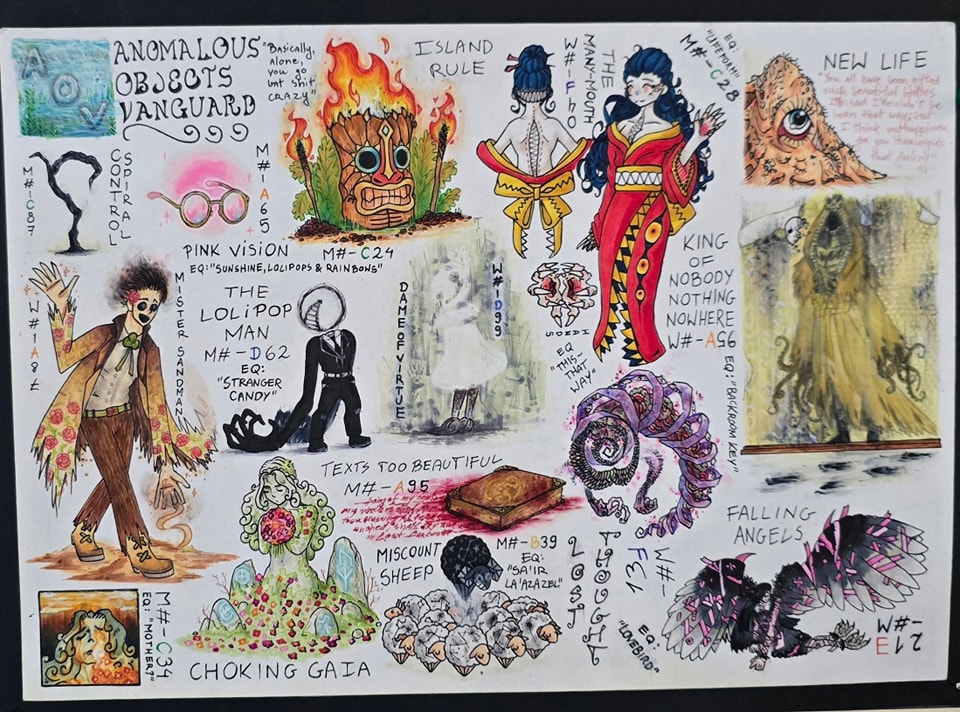 A O V
ANOMALOUS
OBJECTS
VANGUARD
"Basically,
Alone,
you go
bat shit
CRAZY"
ISLAND
RULE
M#-C24
W#-F40
THE
MANY-MOUTH
EQ:
"LIFEFORM"
M#-C28
NEW LIFE
"You all have been gifted
such beautiful bodies
It's sad I couldn't be
born that way; but
I think
that
M#C87
CONTROL
SPIRAL
M#-A65
PINK VISION
EQ:"SUNSHINE, LOLIPOPS & RAINBONS"
W#1A87
MISTER SANDMAN
THE
LOLIPOP
MAN
M#-D62
EQ:
"STRANGER
CANDY"
DAME OF VIRTUE
W#-D99
HANDS
EQ
"THIS-
THAT
WAY"
KING
OF
NOBODY
NOTHING
NOWHERE
W#-A56
EQ:"BACKROOM KEY"
TEXTS TOO BEAUTIFUL
M#-A95
MISCOUNT
SHEEP
M#-B39
EQ:
"SA'IR
LA'AZAZEL"
LOST
THOUGH
W#-
F
EQ:
"LOVEBIRD"
FALLING
ANGELS
W#-
E12
M#-C34
EQ: "MOTHER?"
CHOKING GAIA